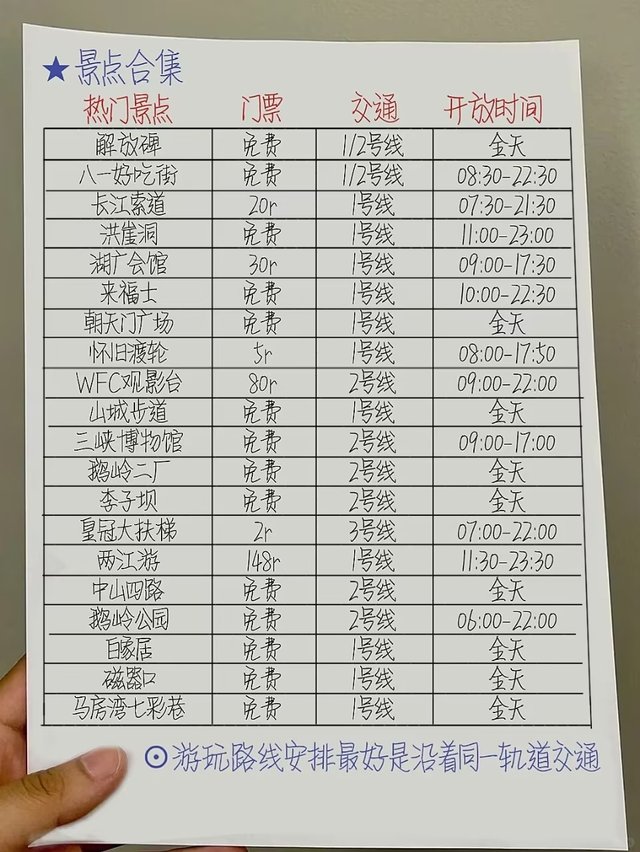 ★景点合集
热门景点 门票 交通 开放时间
解放碑 免费 1/2号线 全天
八一好吃街 免费 1/2号线 08:30-22:30
长江索道 20r 1号线 07:30-21:30
洪崖洞 免费 1号线 11:00-23:00
湖广会馆 30r 1号线 09:00-17:30
来福士 免费 1号线 10:00-22:30
朝天门广场 免费 1号线 全天
怀旧渡轮 5r 1号线 08:00-17:50
WFC观影台 80r 2号线 09:00-22:00
山城步道 免费 1号线 全天
三峡博物馆 免费 2号线 09:00-17:00
鹅岭二厂 免费 2号线 全天
李子坝 免费 2号线 全天
皇冠大扶梯 2r 3号线 07:00-22:00
两江游 148r 1号线 11:30-23:30
中山四路 免费 2号线 全天
鹅岭公园 免费 2号线 06:00-22:00
白象居 免费 1号线 全天
磁器口 免费 1号线 全天
马房湾七彩巷 免费 1号线 全天
⊙游玩路线安排最好是沿着同一轨道交通